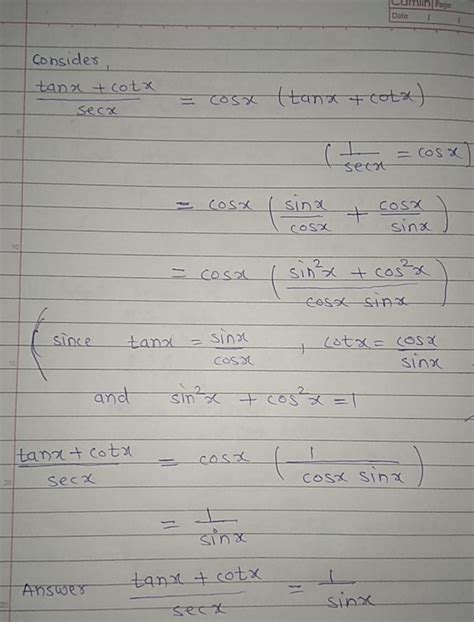 Camlin Page
Date / /
Consider,
(tanx + cotx)/secx = cosx (tanx + cotx)
(1/secx = cosx)
= cosx (sinx/cosx + cosx/sinx)
= cosx ((sin²x + cos²x)/(cosx sinx))
(since tanx = sinx/cosx , cotx = cosx/sinx
and sin²x + cos²x = 1
(tanx + cotx)/secx = cosx (1/(cosx sinx))
= 1/sinx
Answer (tanx + cotx)/secx = 1/sinx